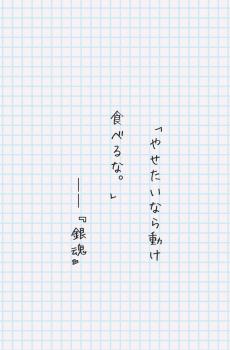 「やせたいなら動け
食べるな。」
——『銀魂』